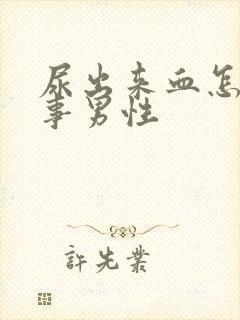 尿出来血怎
事男性
許先業